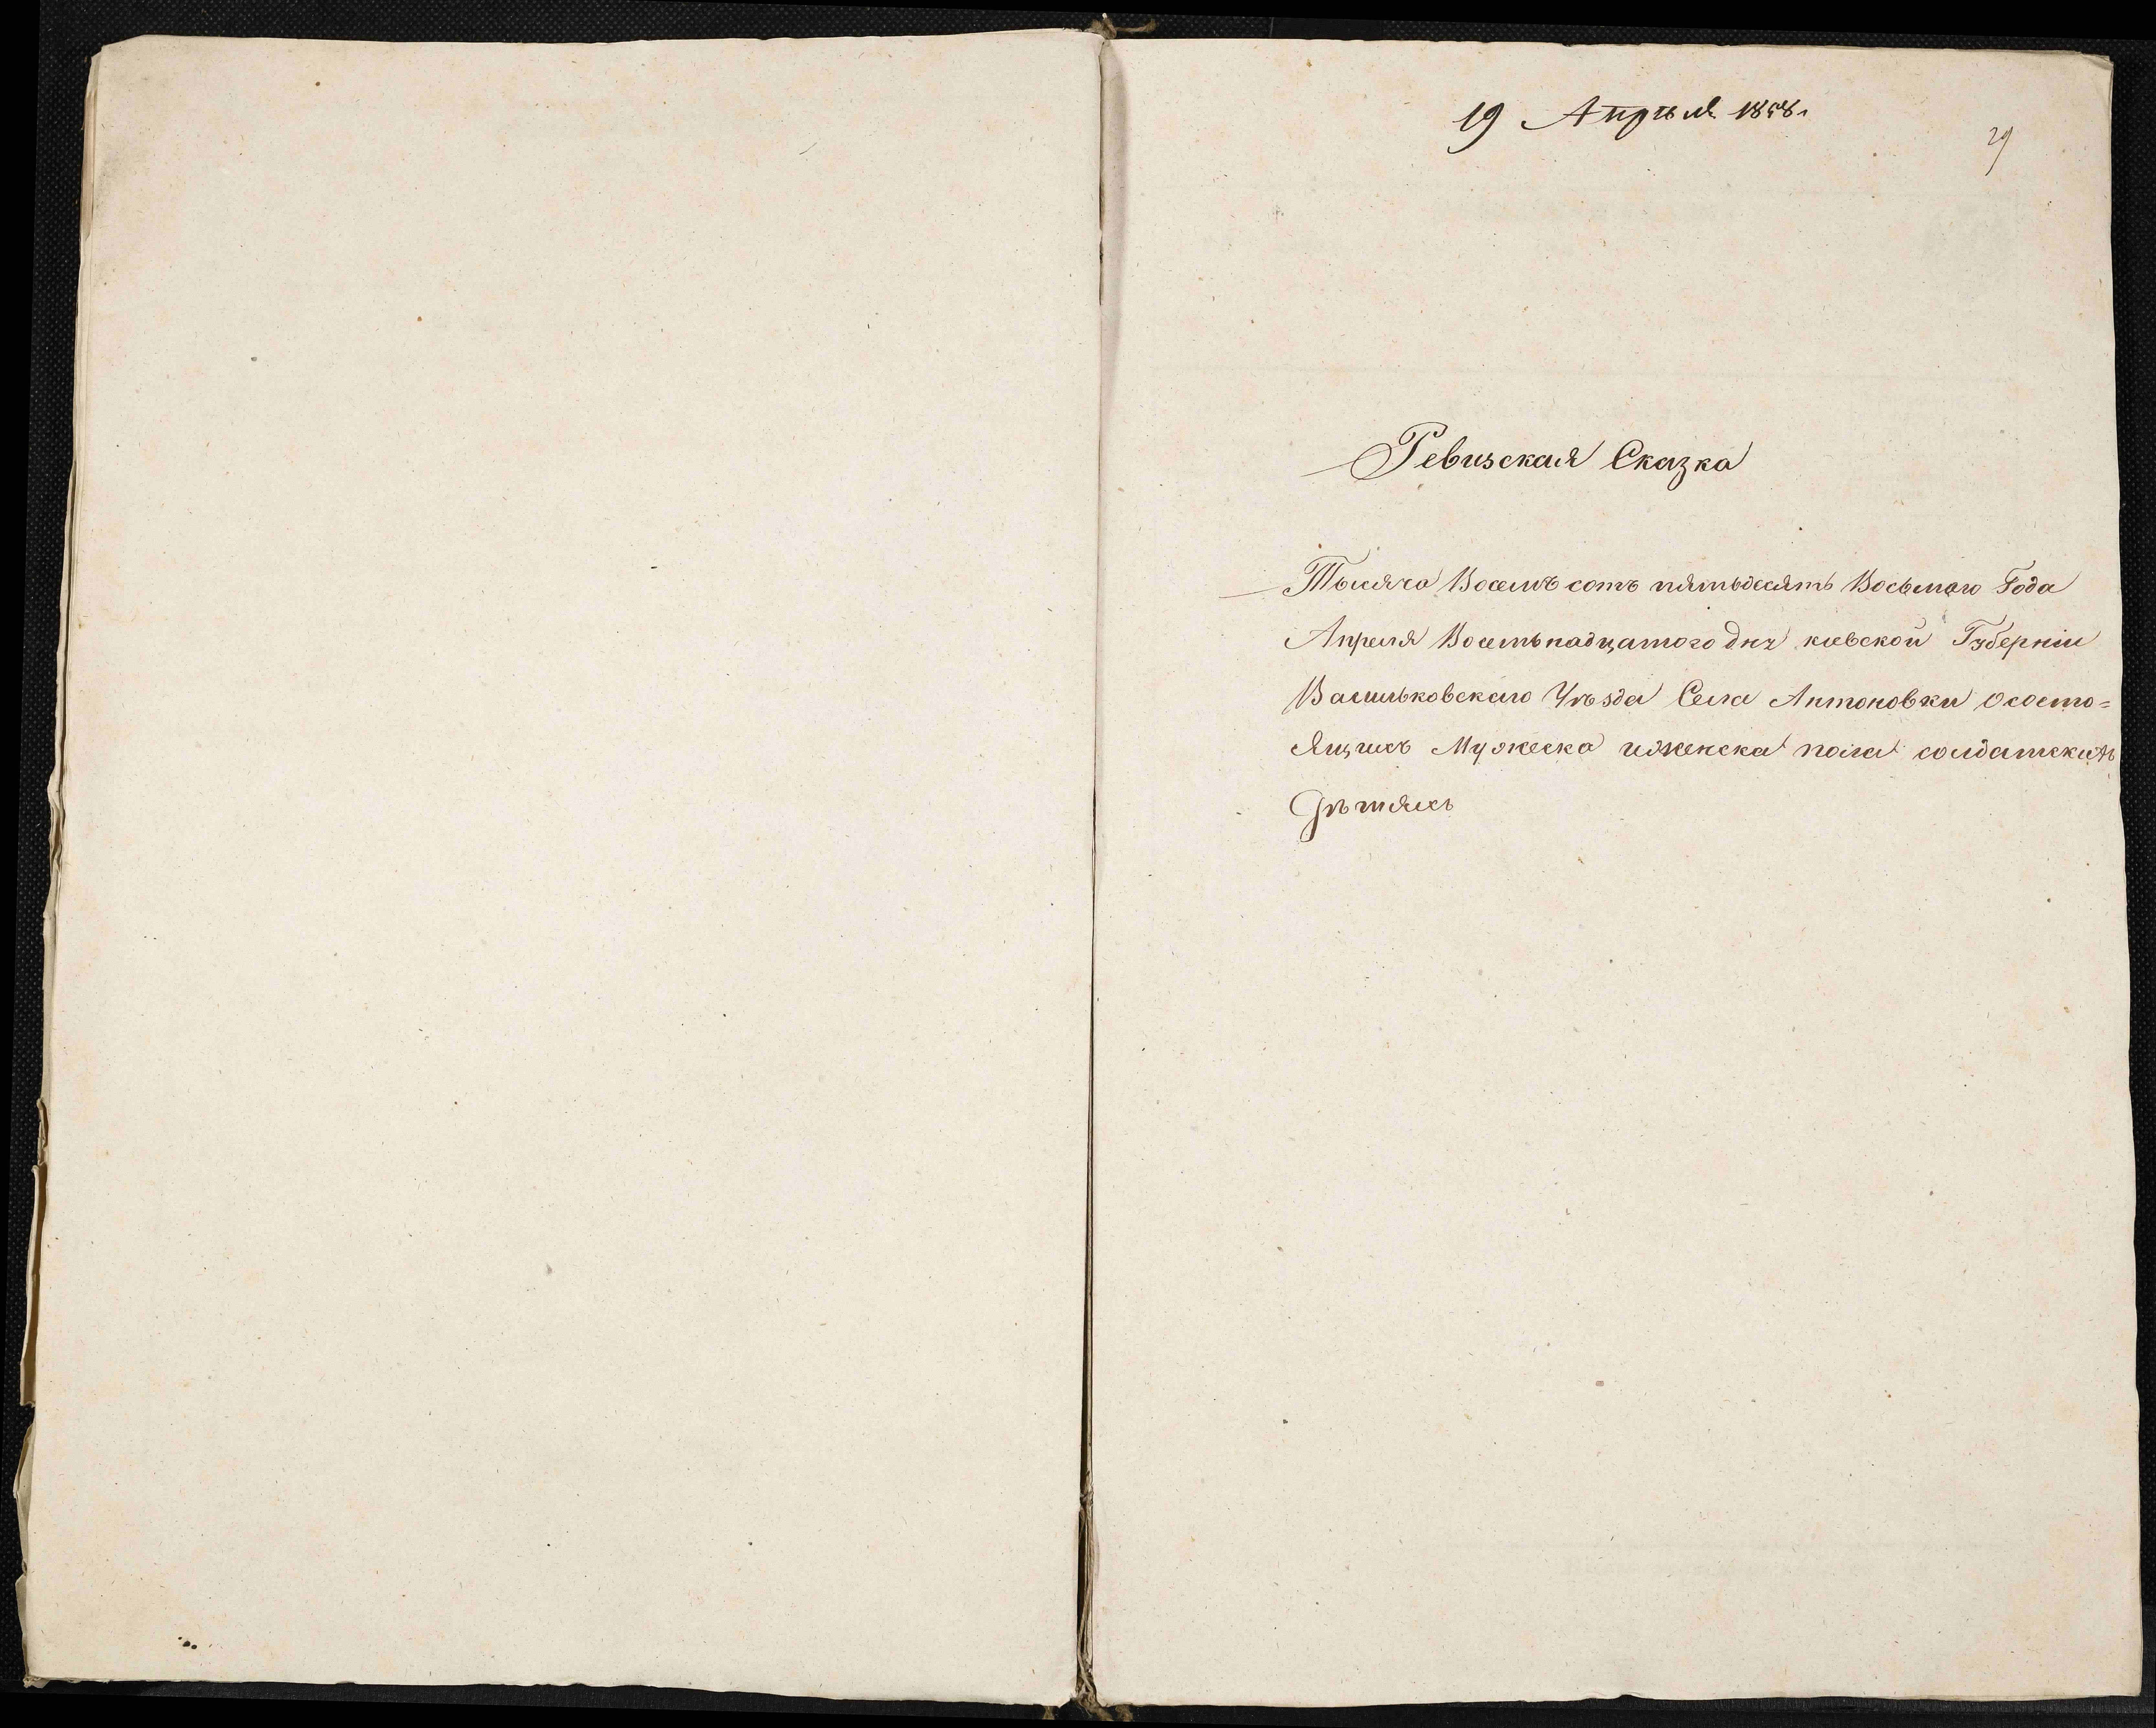 19 Апрѣля 1858 г
29
Ревизская Сказка
Тысяча Восемъ сотъ пятьдесятъ Восьмаго Года
Апреля Восемьнадцатого дня киевской Губерніи
Васильковскаго Уѣзда Села Антоновки ососто=
ящихъ Мужеска иженска пола солдатскихъ
Дѣтяхъ